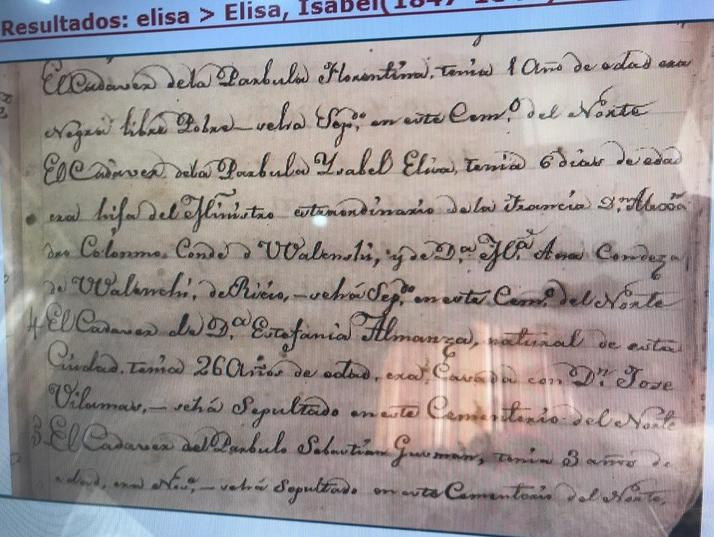 Resultados: elisa > Elisa, Isabel(1847-
El Cadaver dela Parbula Florentina, tenia 1 Año de edad era
Negra libre Pobre_ se ha Sepdo. en este Cemo. del Norte
El Cadaver dela Parbula Ysabel Elisa, tenia 6 dias de edad
era hija del Ministro extraordinario de la Francia Dn. Alexan
dro Colonna Conde d Walenski, y de Da. Ma. Ana Condeza
de Walenski, de Ricio,_ se ha Sepdo. en este Cemo. del Norte
4 El Cadaver de Da. Estefania Almanza, natural de esta
Ciudad, tenia 26 Años de edad, era Casada con Dn. Jose
_ se há Sepultado en este Cementerio del Norte
3 El Cadaver del Parbulo Sebastian Gusman, tenia 3 años de
edad, era _ se há Sepultado en este Cementerio del Norte.